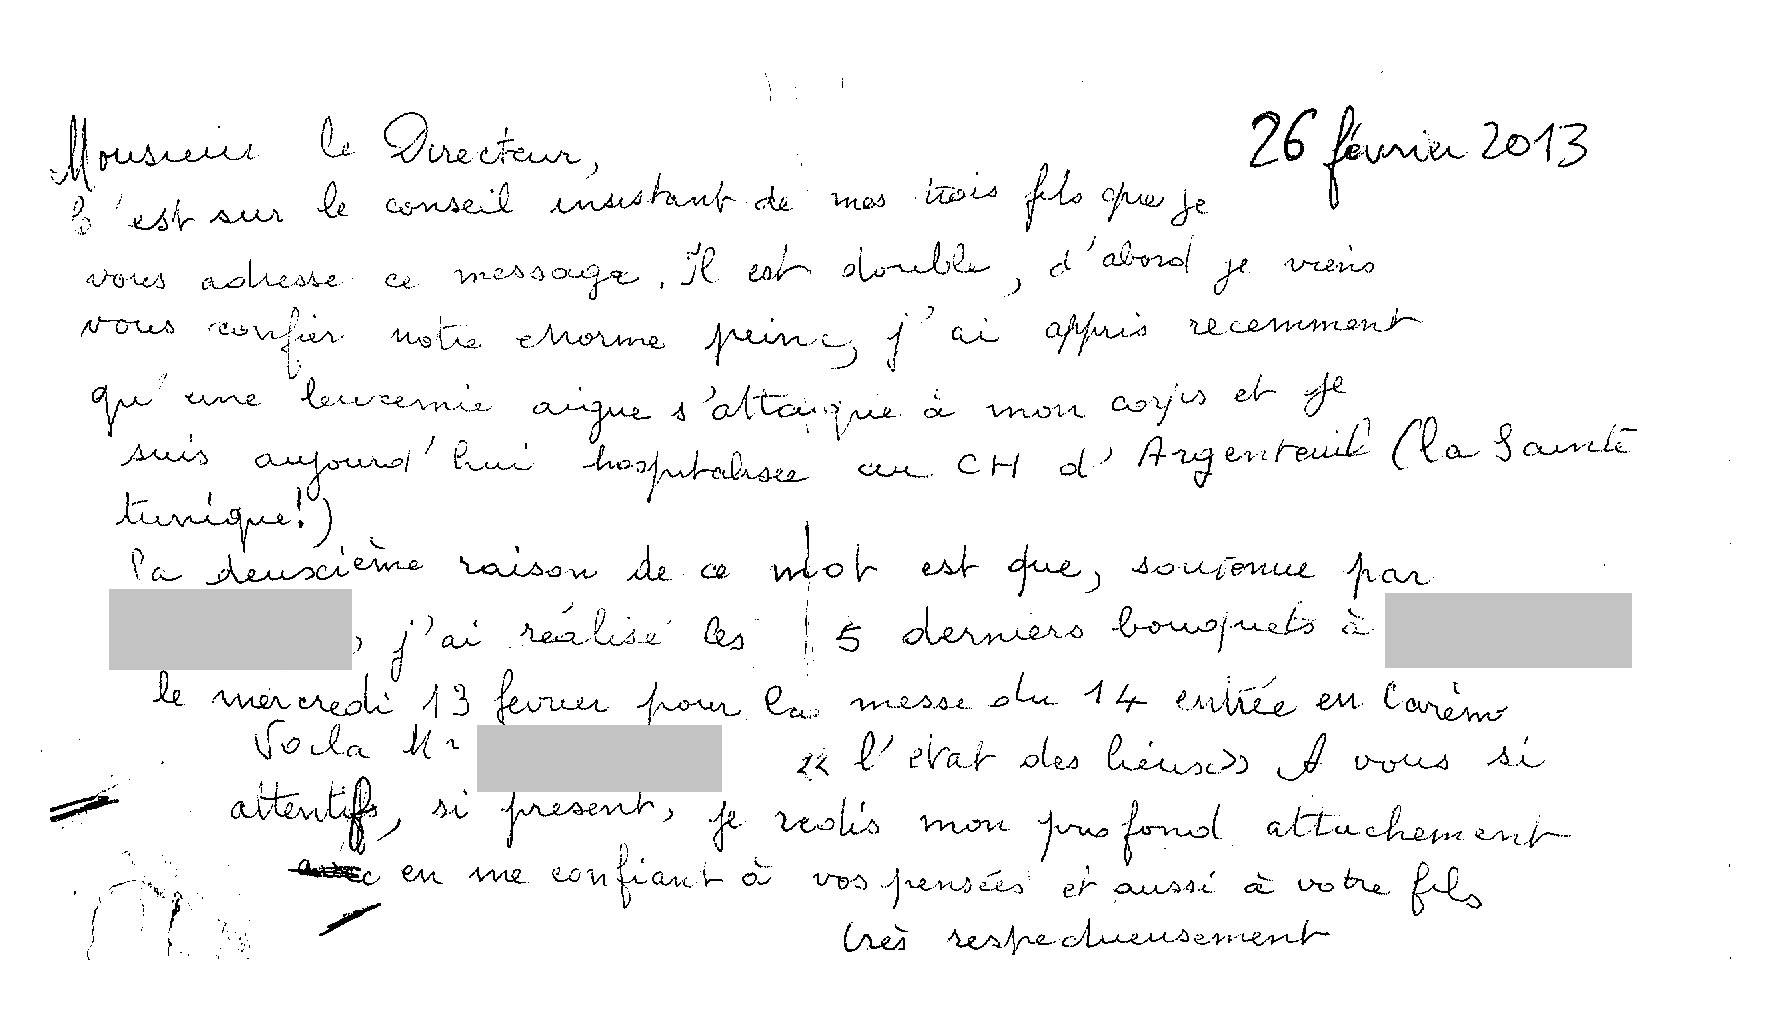 26 février 2013
Monsieur le Directeur,
C'est sur le conseil insistant de mes trois fils que je
vous adresse ce message. Il est double, d'abord je viens
vous confier notre enorme peine, j'ai appris recemment
qu'une leucemie aigue s'attaque à mon corps et je
suis aujourd'hui hospitalisee au CH d'Argenteuil (la Sainte
tunique!)
la deuxième raison de ce mot est que, soutenue par
, j'ai réalisé les 5 derniers bouquets à
le mercredi 13 fevrier pour la messe du 14 entrée en Carême
Voila Mr « l'etat des lieux» A vous si
attentifs, si present, je redis mon profond attachement
en me confiant à vos pensées et aussi à votre fils
très respectueusement